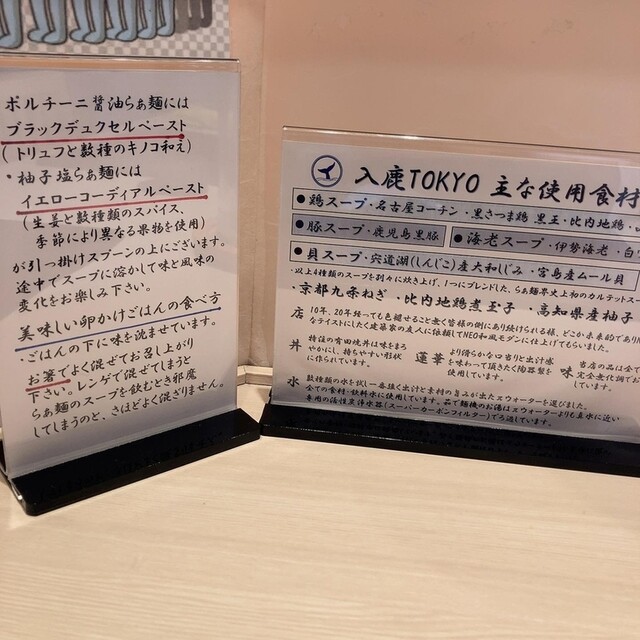 ポルチーニ醤油らぁ麺には
ブラックデュクセルペースト
(トリュフと数種のキノコ和え)
・柚子塩らぁ麺には
イエローコーディアルペースト
(生姜と数種類のスパイス、
季節により異なる果物を使用)
が引っ掛けスプーンの上にございます。
途中でスープに溶かして味と風味の
変化をお楽しみ下さい。
美味しい卵かけごはんの食べ方
・ごはんの下に味を洗ませています。
お箸でよく混ぜてお召し上がり
下さい。レンゲで混ぜてしまうと
らぁ麺のスープを飲むとき邪魔
してしまうのと、さほどよく混ざりません。
入鹿TOKYO 主な使用食材
●鶏スープ・名古屋コーチン・黒さつま鶏 黒王・比内地鶏
●豚スープ・鹿児島黒豚
●海老スープ・伊勢海老・白
●貝スープ・宍道湖(しんじこ)産大和しじみ・宮島産ムール貝
・以上4種類のスープを別々に炊き上げ、1つにブレンドした、らぁ麺界史上初のカルテットス
・京都九条ねぎ ・比内地鶏煮玉子 ・高知県産柚子
店 10年、20年経っても色褪せること無く皆様の側にあり続けられる様、どこか未来的であり
なテイストにしたく建築家の友人に依頼してNEO和風モダンに仕上げてもらいました。
丼 特注の有田焼丼は味をまろ
やかにし、持ちやすい形状
に作られています。
蓮華 より滑らかな口当りと出汁感
を味わって頂きたく陶器製を
使用しています。
味 当店の品は全て
完全無化調で
しています。
水 数種類の水を試し一番強く出汁と素材の旨みが出たπウォーターを選びました。
全ての食材・飲料水に使用しています。品で麺機のお湯はπウォーターよりも真水に近い
専用の活性炭浄水器(スーパーカーボンフィルター)でろ過しています。